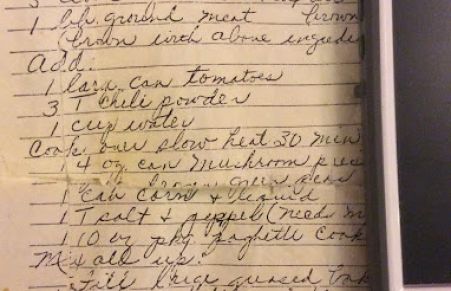 1 lb. ground meat brown
(brown with above ingredie
Add:
1 large can tomatoes
3 T chili powder
1 cup water
Cook over slow heat 30 min
4 oz. can mushroom piec
green peas
1 can corn & liquid
1 T salt & pepper (needs m
1 10 oz pkg spaghetti cook
Mix all up.
Fill large greased bak